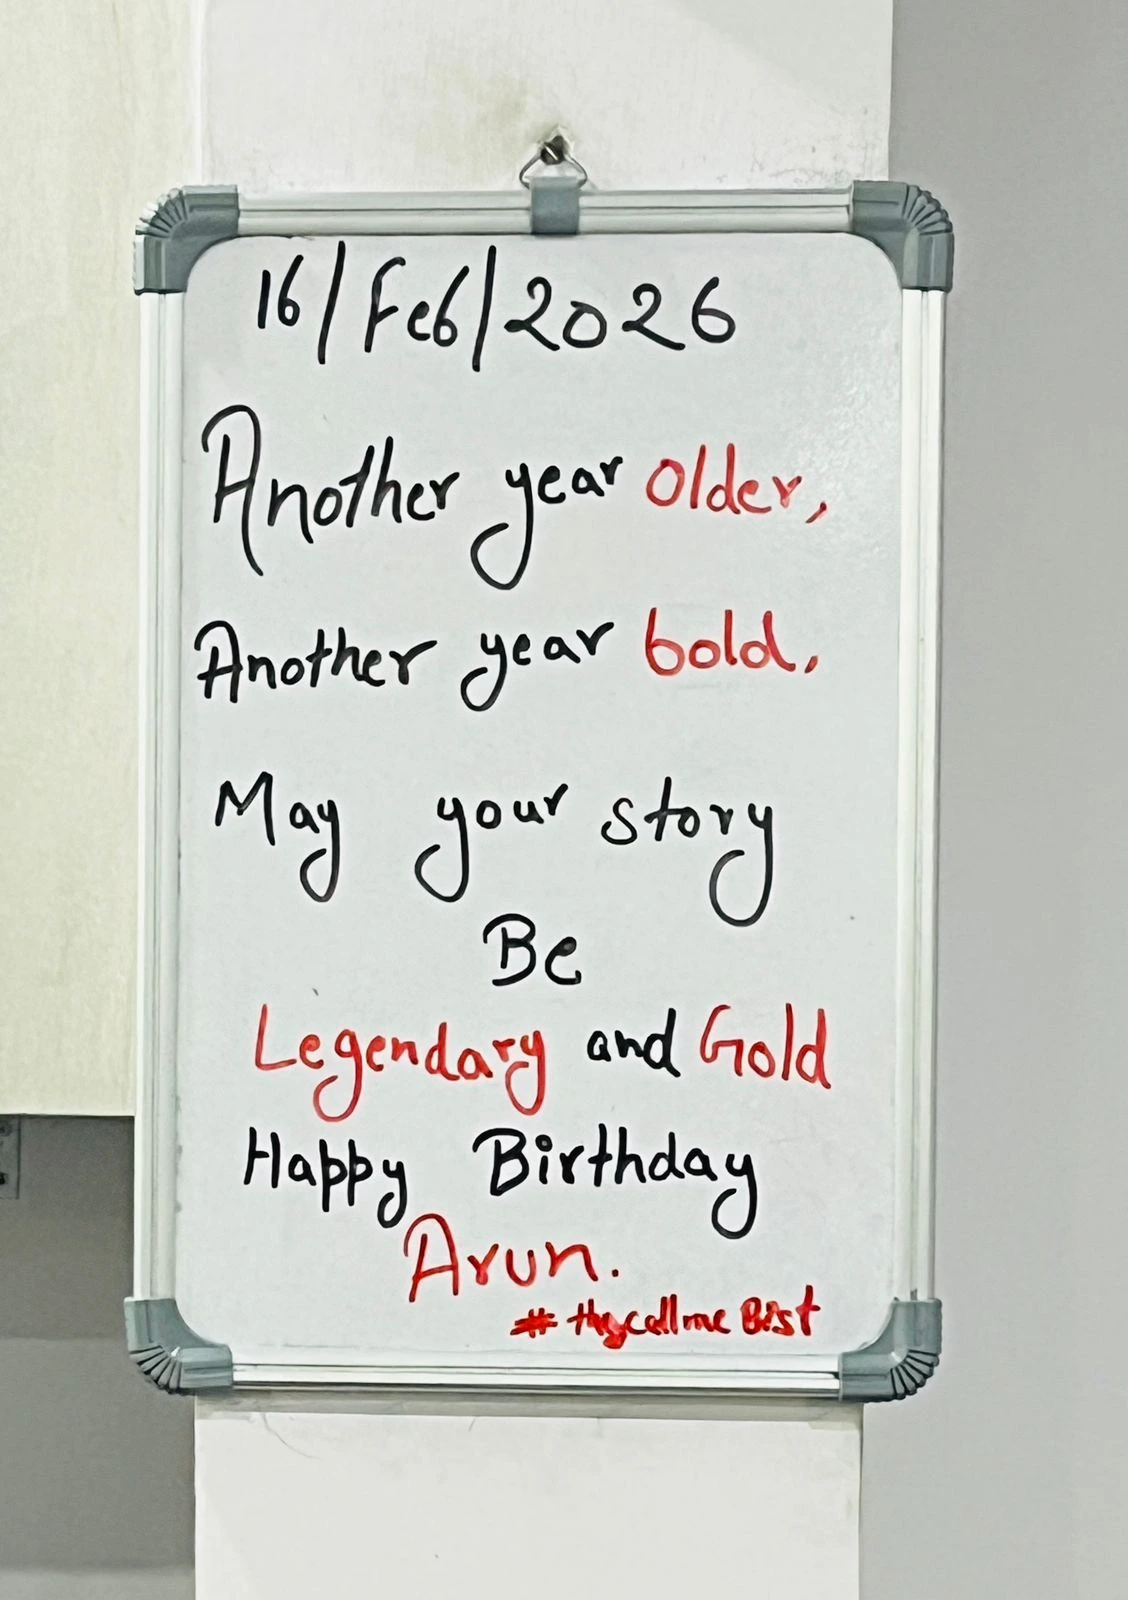 16/Feb/2026
Another year older,
Another year bold,
May your story
Be
Legendary and Gold
Happy Birthday
Arun.
# theycallme Best